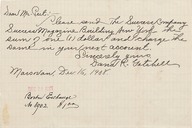 Dear Mr Peet:-
Please send The Success Company
Success Magazine Building New York the
sum of one (1) dollar and charge the
same in your (next account.
Sincerely yours
David R. Getchell
Marsovan Dec 16, 1908.
Exchange
No 8902 $1.00